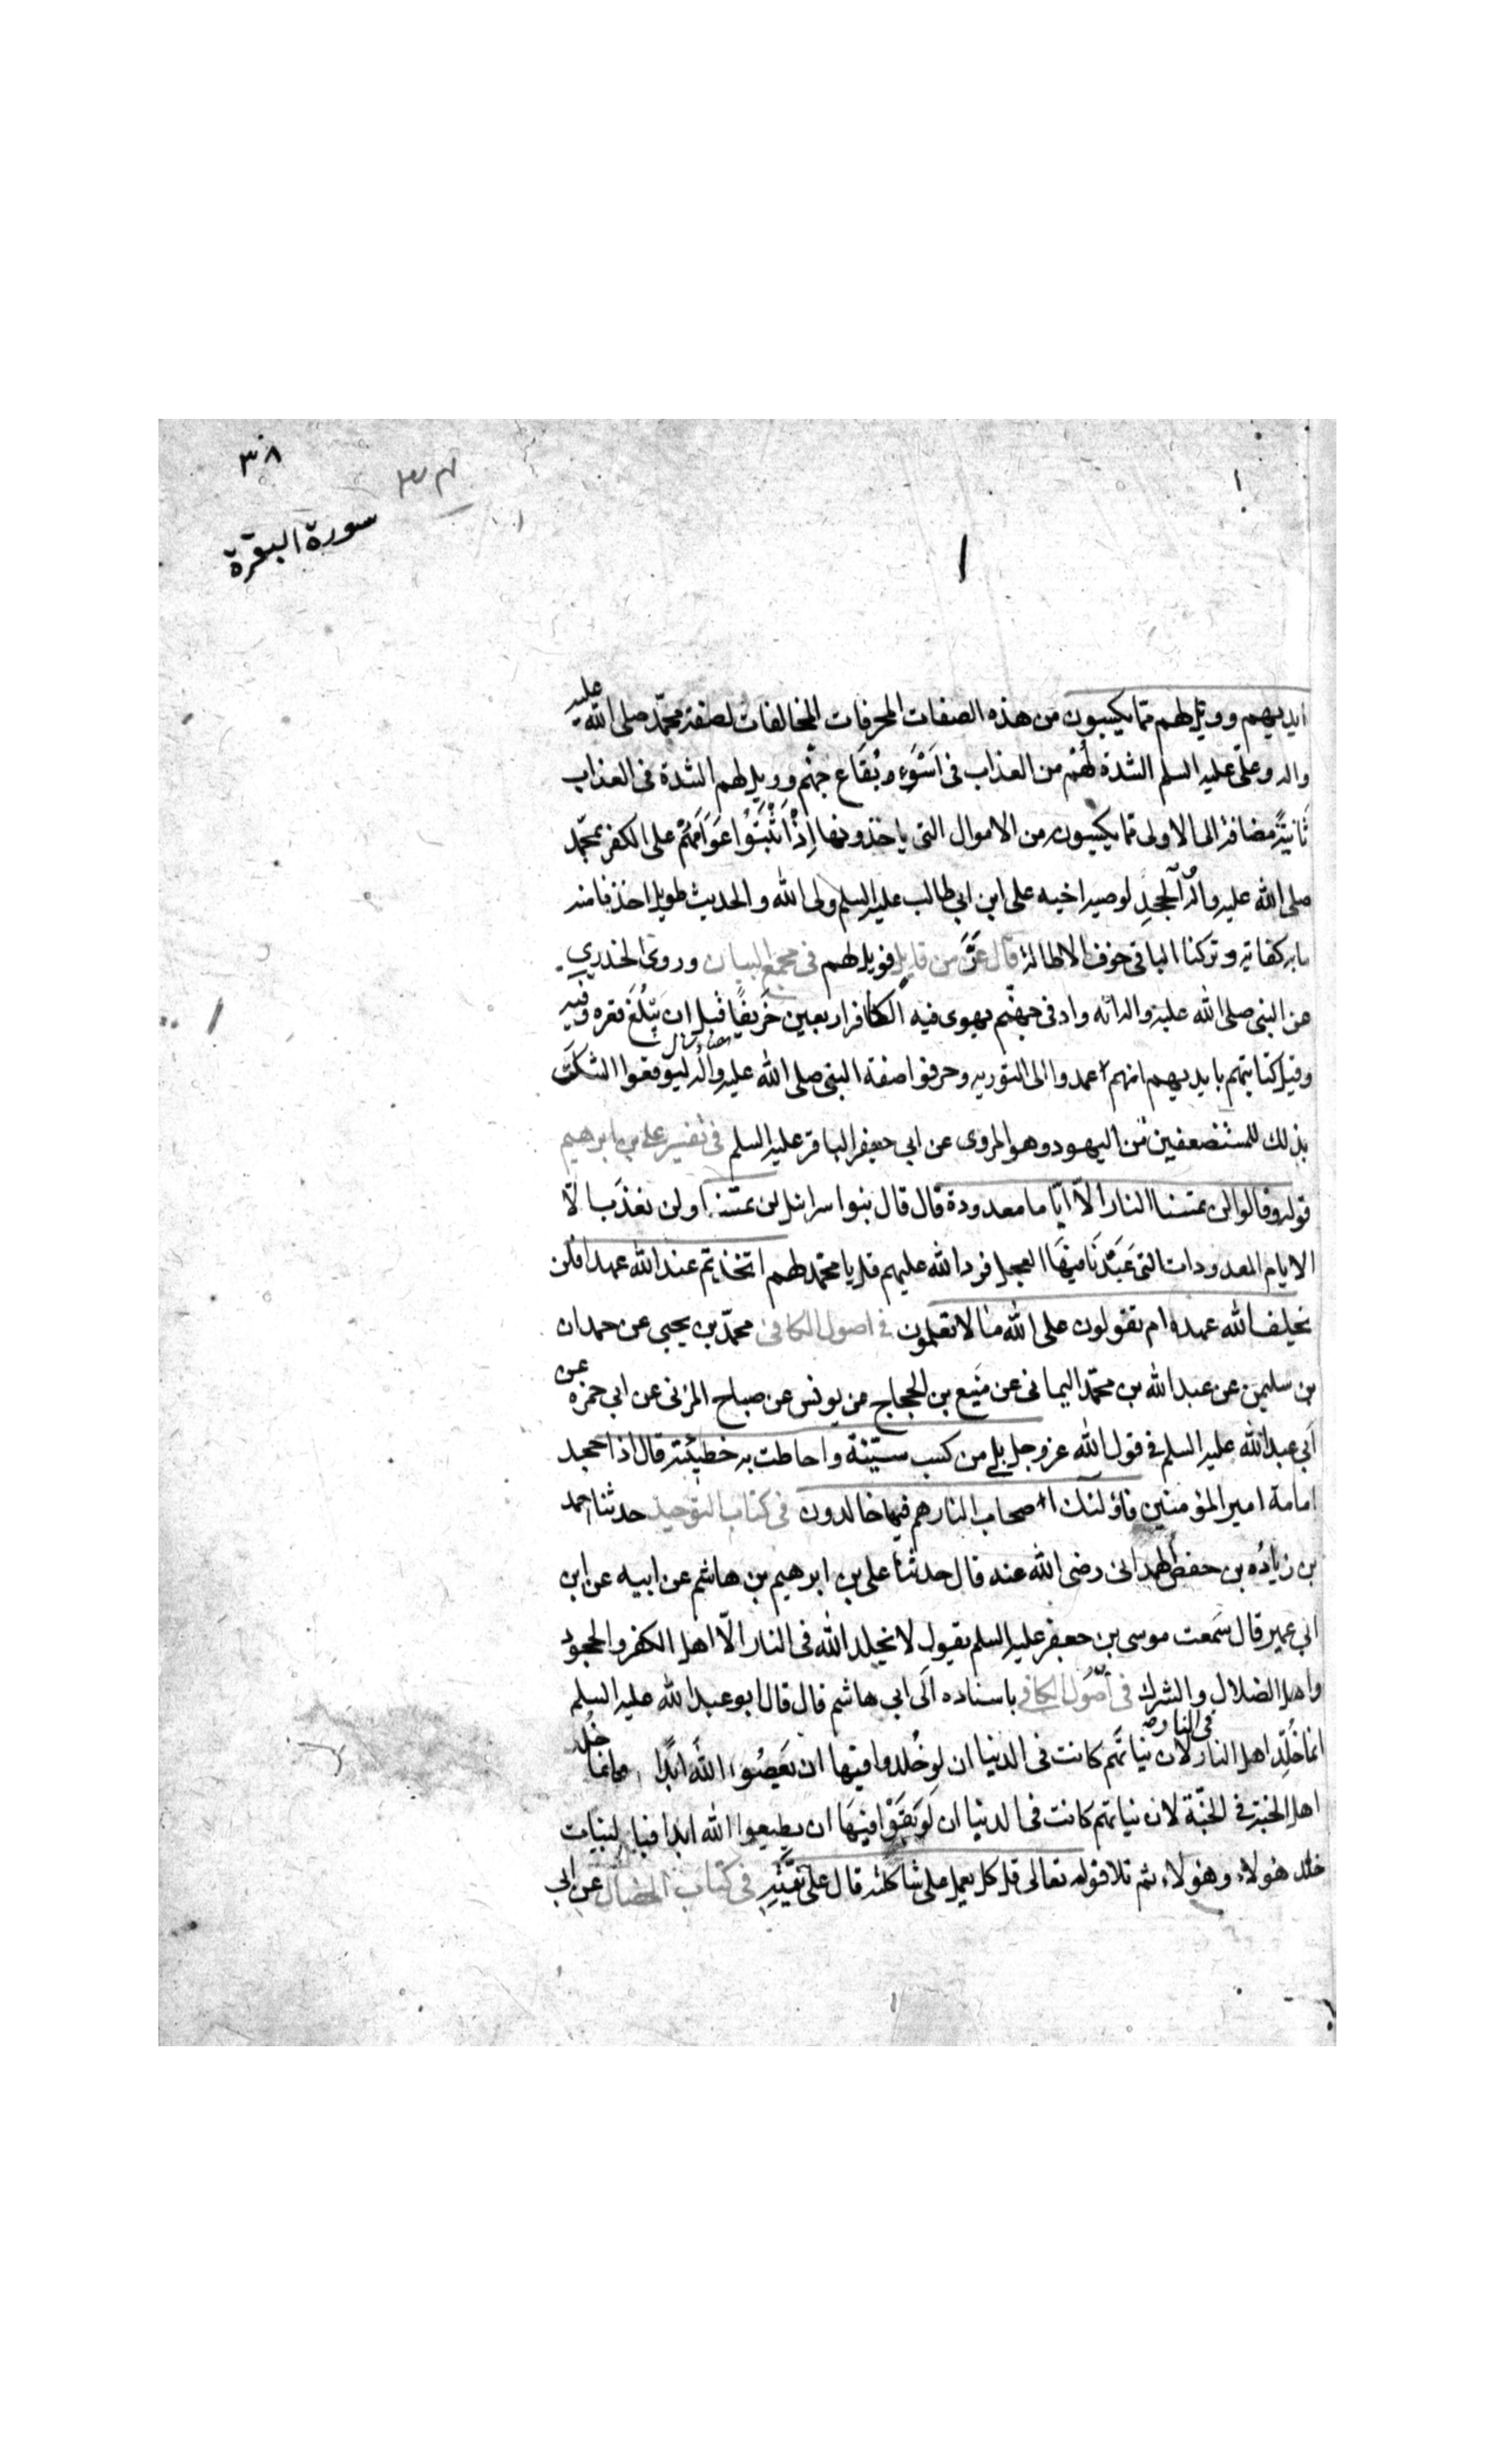 ٣٨
سورة البقرة
ايديهم وويل لهم مما يكسبون من هذه الصفات المحرفات المخالفات لصفة محمّد صلى الله عليه
واله وعلىّ عليه السلم الشدة لهُمْ من العذاب فى اَسْوَءِ بُقَاعِ جهنّم وويل لهم الشدة فى العذاب
ثَانيَةً مضافة الى الاولى مما يكسبون من الاموال التى ياخذونها اِذْ اَثْبَتُوا عَوَامَّهُمْ على الكفر بمحمّد
صلى الله عليه واله الْجحدِ لوصيه اخيه على ابن ابى طالب عليه السلم ولى الله والحديث طويل اخذنا منه
ما به كفاية وتركنا الباقى خوف الاطالة قال عَزَّ من قايل فويل لهم فى مجمع البيان وروى الخدرى
عن النبى صلى الله عليه واله انه واد فى جهنّم يهوى فيه الكافر اربعين خَرِيفًا قبل ان يَبْلُغَ قعره وفيه
وقيل كتابتهم بايديهم انهم عمدوا الى التورية وحرفوا صفة النبى صلى الله عليه واله ليوقعوا الشكّ
بذلك للمستضعفين من اليهود وهو المروى عن ابى جعفر الباقر عليه السلم فى تفسير على بن ابرهيم
قوله وقالوا لن تمسنا النار الّا ايّاما معدودة قال قال بنوا سرائيل لن تمسّنا ولن نعذّب الّا
الايام المعدودات التى عَبَدْنَا فيهَا العجل فرد الله عليهم قل يا محمّد لهم اتخذتم عند الله عهدا فلن
يخلف الله عهده ام تقولون على الله ما لا تعلمون فى اصول الكافى محمّد بن يحيى عن حمدان
بن سليمن عن عبد الله بن محمّد اليمانى عن مَنيع بن الحجاج عن يونس عن صباح المزنى عن ابى حمزه عن
اَبى عبد الله عليه السلم فى قول الله عز وجل بلى من كسب سيّئة واحاطت به خطيئته قال اذا جحد
امامة امير المؤمنين فاولئك اصحاب النار هم فيها خالدون فى كتاب التوحيد حدثنا احمد
بن زياده بن حفص الهمدانى رضى الله عنه قال حدثنا على بن ابرهيم بن هاشم عن ابيه عن ابن
ابى عمير قال سَمعت موسى بن جعفر عليه السلم يقول لا يخلد الله فى النار الّا اهل الكفر والجحود
واهل الضلال والشرك فى اُصُول الكافى باسناده الَى ابى هاشم قال قال ابو عبد الله عليه السلم
انما خُلّد اهل النار فى النار لان نياتهم كانت فى الدنيا ان لو خُلدوا فيها ان يَعصُوا اللهَ ابدًا وانما خُلد
اهل الجنة فى الجنّة لان نياتهم كانت فى الدنيا ان لَو بَقَوْا فيهَا ان يطيعوا الله ابدا فبالنيات
خلد هؤلاء وهؤلاء ثم تلا قوله تعالى قل كل يعمل على شاكلته قال على نيَّتِهِ فى كتاب الخصال عن ابى